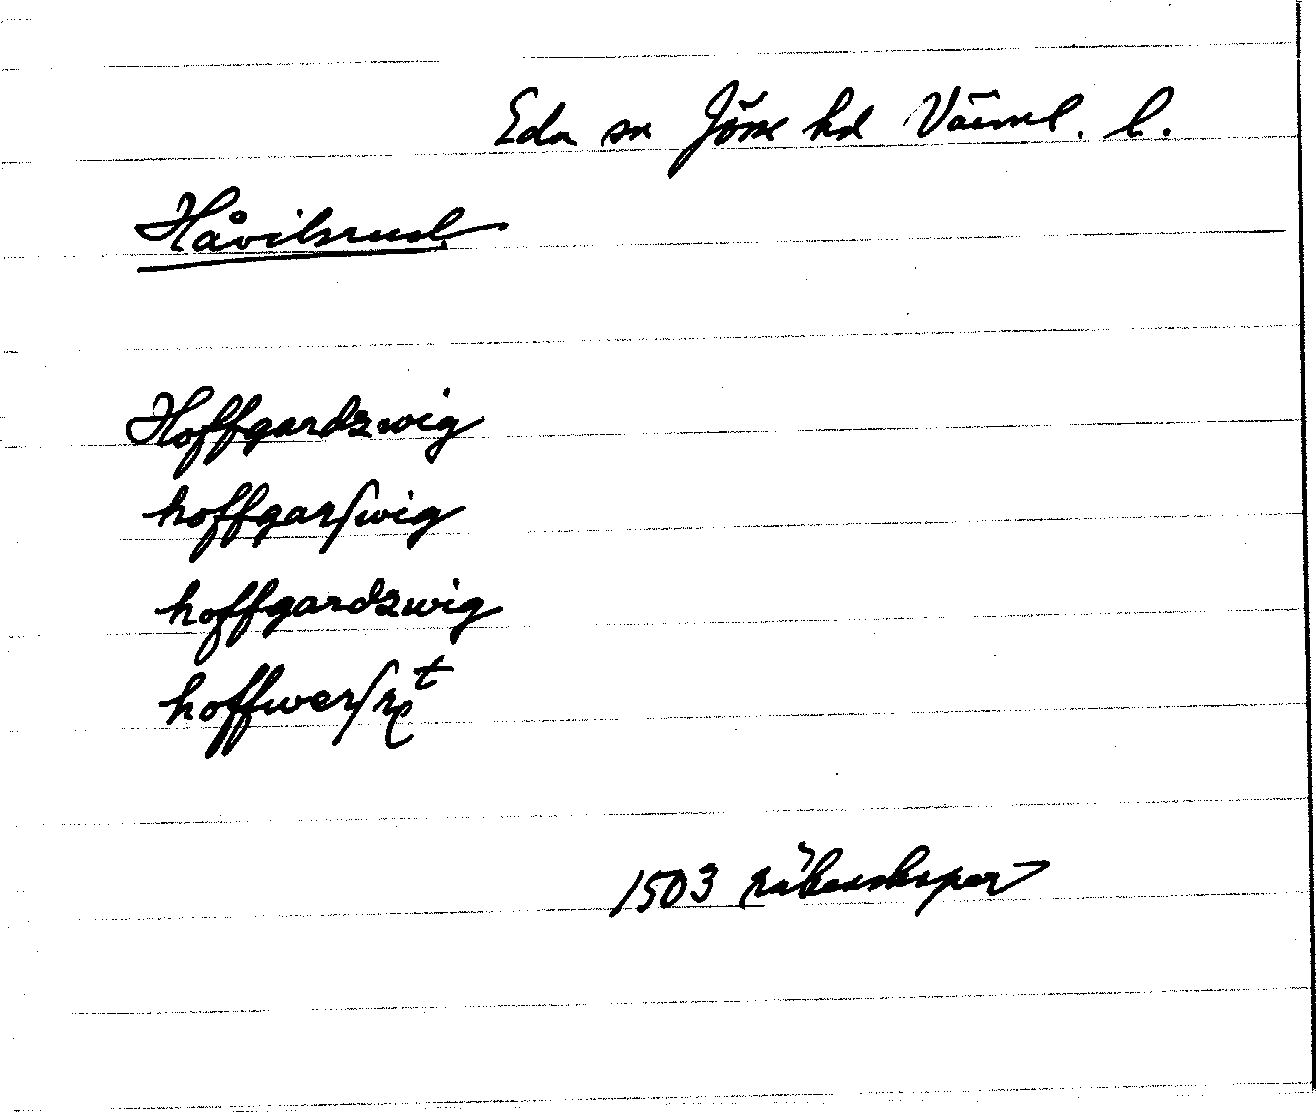 Eda sn Jösse hd Värml. l.
Håvilsrud
Hoffgardzwig
hoffgarſwig
hoffgardzwig
hoffwerſ
1503 räkenskaper